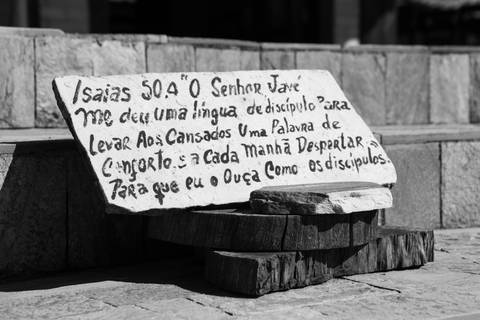 Isaías 50.4 "O Senhor Javé
me deu uma língua de discípulo Para
Levar Aos Cansados Uma Palavra de
Conforto. e a Cada Manhã Despertar
Para que eu o Ouça Como os discípulos."